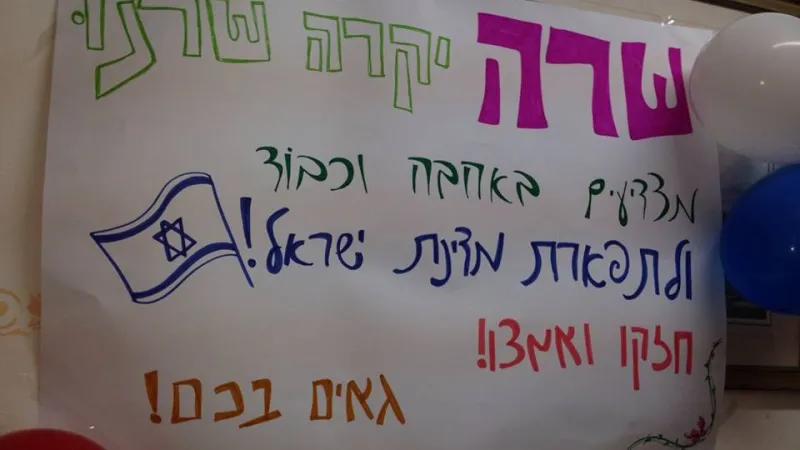 שרה יקרה שלנו
מצדיעים באהבה וכבוד
ולתפארת מדינת ישראל!
חזקו ואמצו!
גאים בכם!